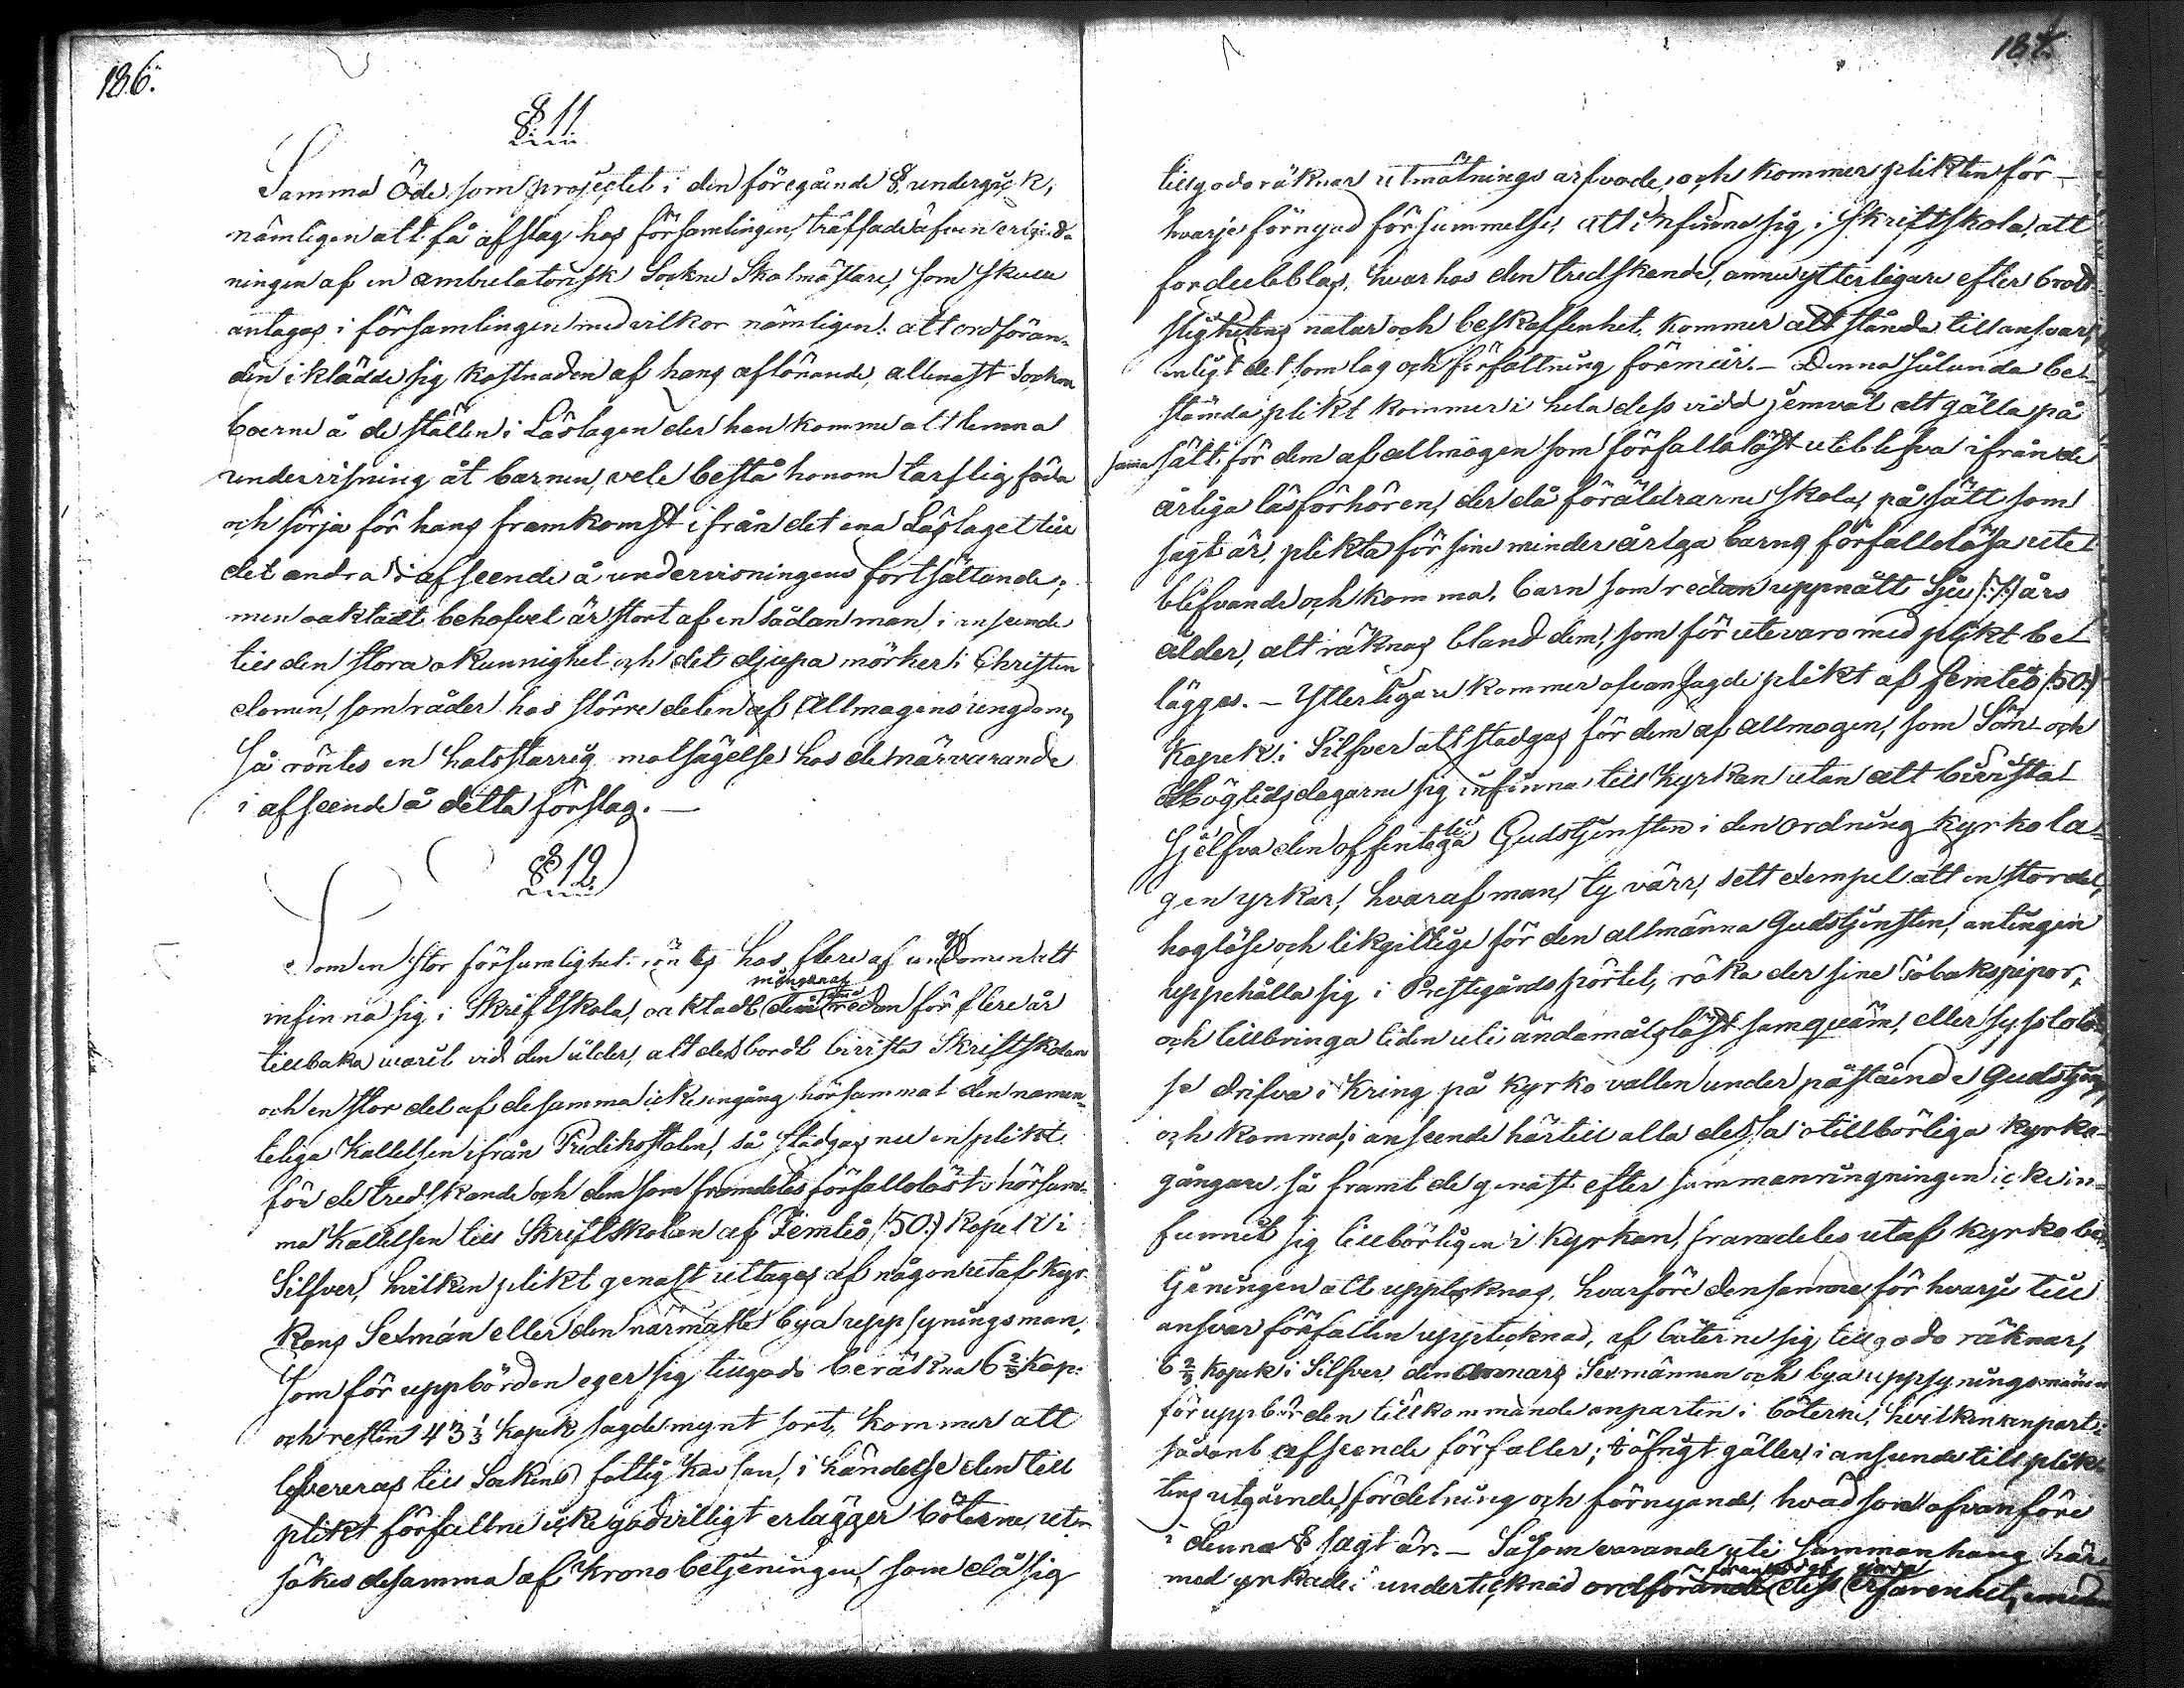 186.
§ 11
Samma öde som projectet i den föregående § undergick,
nämligen att få afslag hos församlingen, träffade äfven
ningen af en ambulatorisk Sockne Skolmästare, som skulle
antagas i församlingen med vilkor nämligen: att ordföran-
den iklädde sig kostnaden af hans aflönande, allenast Sockne
boerne å de ställen i Läslagen der han komme att lemna
undervisning åt barnen, vele bestå honom tarflig föda
och sörja för hans framkomst ifrån det ena Läslaget till
det andra i afseende å undervisningens fortsättande;
men oaktadt behofvet är stort af en sådan man i anseende
till den stora okunnighet och det djupa mörker i Christen
domen, som råder hos större delen af Allmogens ungdom,
så röntes en halsstarrig motsägelse hos de närvarande
i afseende å detta förslag.
§ 12
Som en stor försumlighet röntes hos flere af ungdomen att
mångenas
infinna sig i Skriftskola, oaktadt redan för flere år
tillbaka warit vid den ålder, att de bordt bivista Skriftskolan
och en stor del af desamma icke engång hörsammat den namn-
teliga Kallelsen ifrån Predikostolen, så stadgas nu en plikt
för de tredskande och dem som framdeles förfallolöst ohörsam-
ma Kallelsen till Skriftskolan af Femtio (:50:) Kopek i
Silfver, hvilken plikt genast uttages af någon utaf Kyr-
kans Sexmän eller den närmaste bya uppsyningsman,
som för uppbörden eger sig tillgodo beräkna 6 2/3 Kop:
och resten 43 1/3 kopek sagde mynt sort, kommer att
levereras till Sockens fattig kassan, i händelse den till
plikt förfallne icke godvilligt erlägger böterne, ut-
sökes desamma af Kronobetjeningen, som då sig
187.
tillgodoräknar utmätnings arfvode, och kommer plikten för
hvarje förnyad försummelse, att infinna sig i Skriftskola, att
fordubblas, hvarhos den tredskande, annu ytterligare efter brott-
slighetens natur och beskaffenhet, kommer att stånda till ansvar,
enligt det som lag och författning förmår. - Denna sålunda be-
stämda plikt kommer i hela dess vidd jemväl att gälla på
samma sätt för dem af allmogen som förfallolöst uteblifva ifrån de
årliga läsförhören, der då föräldrarne skola, på sätt som
sagt är, plikta för sine minderåriga barns förfallolösa ute-
blifvande och komma, barn som redan uppnått Sju (:7:) års
ålder, att räknas bland dem, som för utevaro med plikt be-
lägges. - Ytterligare kommer ofvansagde plikt af femtio (:50:)
Kopek i Silfver att stadgas för dem af allmogen, som Sön- och
Högtidsdagarne sig infinna till Kyrkan utan att bivista
sjelfva den offentliga Gudstjensten i den ordning Kyrkola-
gen yrkar, hvaraf man, ty värr, sett exempel att en stor del,
håglöse och likgiltige för den allmänna Gudstjensten, antingen
uppehålla sig i Prestegårds pörtet, röka der sine Tobakspipor,
och tillbringa tiden uti ändamålslöst samqväm, eller syslolö-
se drifva i kring på Kyrkovallen under påstående Gudstjenst
och komma, i anseende härtill alla dessa otillbörliga kyrko-
gångare, så framt de genast efter sammanringningen icke in-
funnit sig tillbörligen i Kyrkan, framdeles utaf Kyrkobe-
tjeningen att upptecknas, hvarföre densamma för hvarje till
ansvar förfallen upptecknad, af böterne sig tillgodo räknar,
6 2/3 kopek i Silfver, den annars Sexmännen och bya uppsyningsmännen
för uppbörden tillkommande anparten i böterne, hvilken anpart i
sådant afseende förfaller; i öfrigt gäller, i anseende till plik-
tens utgående, fördelning och förnyande, hvad som ofvanföre
i denna § sagt är. - Såsom varande uti sammanhang här-
med yrkade undertecknad ordförande dess